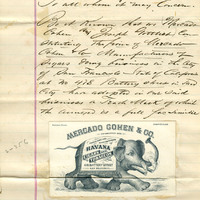 To all whom it may Concern.
Be it Known that we Mercado
Cohen and Joseph Gottlieb, Con
stituting the firm of Mercado
Cohen & Co Manufacturers of
Cigars doing business in the City
of San Francisco State of California
at No 518 Battery Street in said
City have adopted in our said
business a Trade Mark of which
the annexed is a full fac simile
MERCADO COHEN & CO.
HAVANA
CIGARS
TOBACCO
SAN FRANCISCO